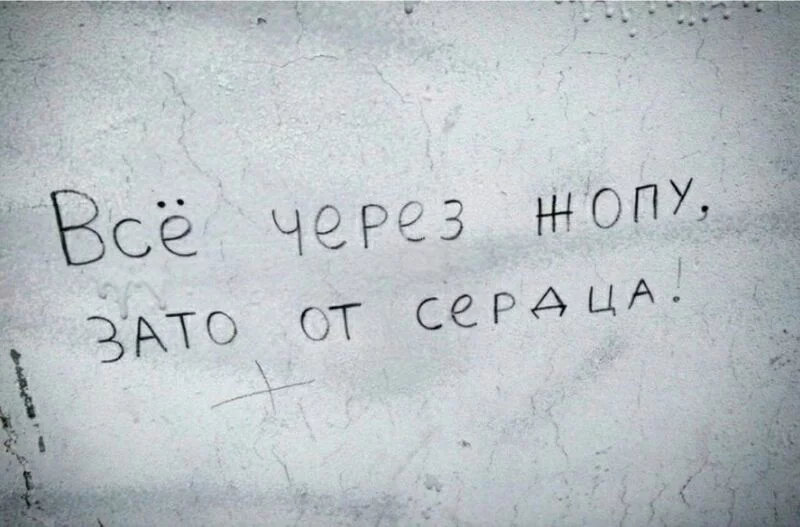 Всё через жопу,
ЗАТО ОТ сердца!